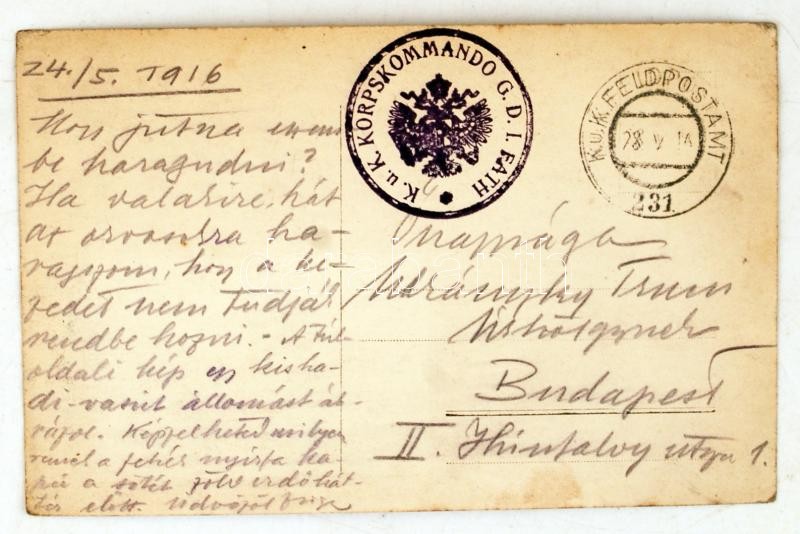 24./5. 1916
Hogy jutna eszem
be haragudni?
Ha valakire, hát
az orvosokra ha-
ragszom, hogy a ke-
zedet nem tudják
rendbe hozni. - A túl-
oldali kép egy kisha-
di-vasút állomást áb-
rázol. Képzelheted milyen
remek a fehér nyírfa ka-
pu a sötét zöld erdő hát-
tér előtt. Üdvözöl
K. u. K. KORPSKOMMANDO G. D. I. FATH
K.u.K. FELDPOSTAMT
28 V
231
Őnagysága
Úrhölgynek
Budapest
II. utca 1.